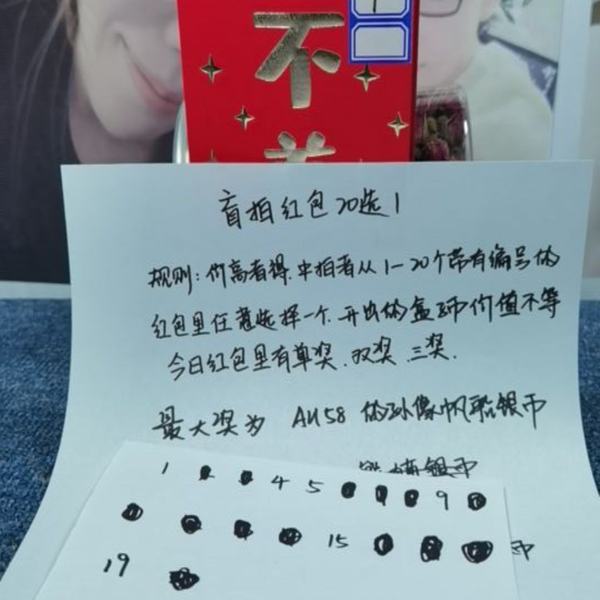 不
盲拍红包20选1
规则:价高者得.中拍者从1-20个带有编号的
红包里任意选择一个.开出的盒币价值不等
今日红包里有单奖.双奖.三奖.
最大奖为 AU58 的孙像帆船银币
银币
1 4 5 9
15
19